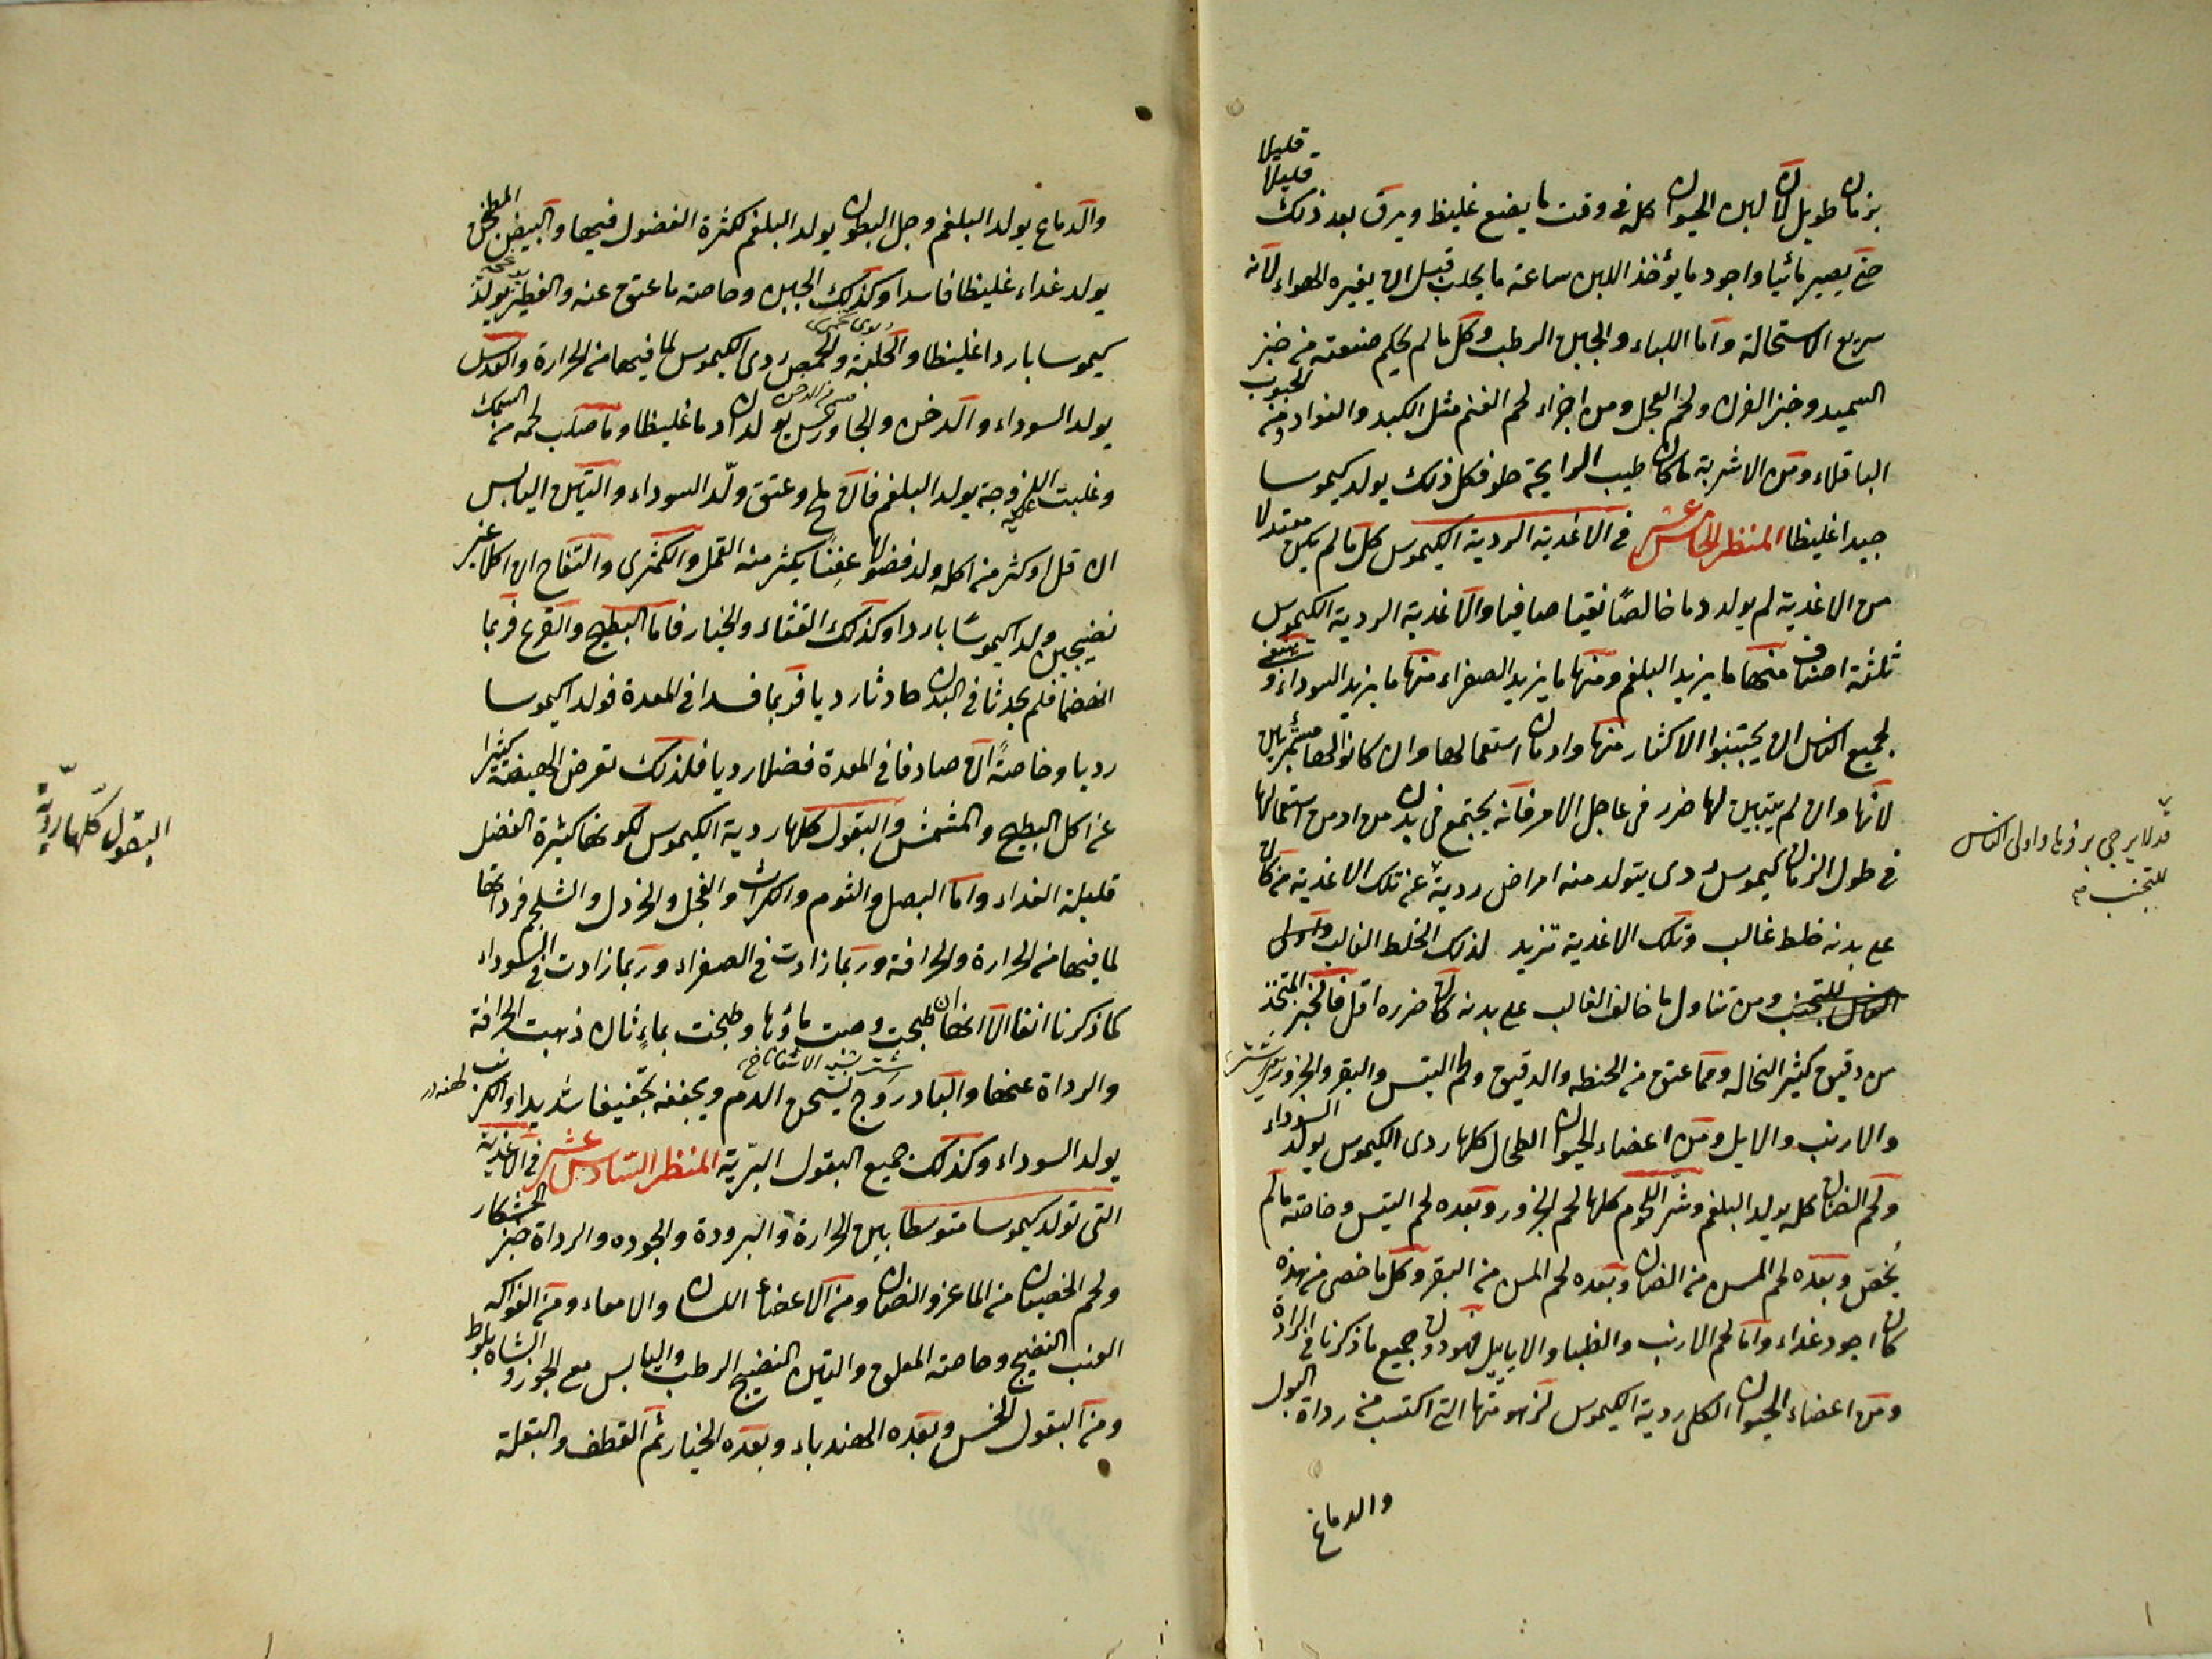 بزمان طويل لان لبن الحيوان كله فى وقت ما يضع غليظ ويرق بعد ذلك قليلا قليلا
حتى يصير مائيا واجود ما يؤخذ اللبن ساعة ما يحلب قبل ان يغيره الهواء لانه
سريع الاستحالة واما اللباء والجبن الرطب وكل ما لم يحكم صنعته من خبز
السميد وخبز الفرن ولحم العجل ومن اجزاء لحم الغنم مثل الكبد والفواد ومن الحبوب
الباقلاء ومن الاشربة ما كان طيب الرايحة حلو فكل ذلك يولد كيموسا
جيدا غليظا المنظر الخامس عشر فى الاغذية الردية الكيموس كل ما لم يكن معتدلا
من الاغذية لم يولد دما خالصًا نقيا صافيا والاغذية الردية الكيموس
ثلثة اصناف منها ما يزيد البلغم ومنها ما يزيد الصفراء منها ما يزيد السوداء وينبغى
لجميع الناس ان يجتنبوا الاكثار منها وادمان استعمالها وان كانوا لها مستمرئين
لانها وان لم يتبين لها ضرر فى عاجل الامر فانه يجتمع فى بدن من ادمن استعمالها
فى طول الزمان كيموس ردى يتولد منه امراض ردية عن تلك الاغذية من كان
على بدنه خلط غالب وتلك الاغذية تزيد لذلك الخلط الغالب واولى
الناس للتجنب ومن تناول ما خالف الغالب على بدنه كان ضرره اقل فالخبز المتخذ
من دقيق كثير النخاله ومما عتق من الحنطه والدقيق ولحم التيس والبقر والجزور
والارنب والايل ومن اعضاء الحيوان الطحال كلها ردى الكيموس يولد السوداء
ولحم الضان كله يولد البلغم وشر اللحوم كلها لحم الجزور وبعده لحم التيس وخاصة ما لم
يخص وبعده لحم المسن من الضان وبعده لحم المسن من البقر وكل ما خصى من هذه
كان اجود غذاء واما لحم الارنب والظبا والاياييل فهو دون جميع ما ذكرنا فى الرداة
ومن اعضاء الحيوان الكلى ردية الكيموس لزهومتها التى اكتسب من رداة البول
والدماغ
قد لا يرجى برؤها واولى الناس
للتجنب منه
والدماع يولد البلغم وجل البطون يولد البلغم لكثرة الفضول فيها والبيض المطجن
يولد غذاء غليظا فاسدا وكذلك الجبن وخاصته ما عتق عنه والفطر يولد
كيموسا باردا غليظا والحلبة والحمص ردى الكيموس لما فيها من الحرارة والعدس
يولد السوداء والدخن والجاورس يولدان دما غليظا وما صلب لحمه من السمك
وغلبت عليه اللزوجة يولد البلغم فان ملح وعتق ولّد السوداء والتين اليابس
ان قل او كثر من اكله ولد فضولا عفِنًا يكثر منه القمل والكمثرى والتفاح ان اكلا غير
نضيجين ولدا كيموسًا باردا وكذلك القثاء والخيار فاما البطيخ والقرع فربما
انهضما فلم يحدثا فى البدن حادثا رديا فربما فسدا فى المعدة فولدا كيموسا
رديا وخاصةً ان صادفا فى المعدة فضلا رديا فلذلك تعرض الهيضة كثيرا
عن اكل البطيخ والمشمش والبقول كلها ردية الكيموس لكونها كثيرة الفضل
قليلة الغذاء واما البصل والثوم والكراث والفجل والخردل والشلجم فرداتها
لما فيها من الحرارة والحرافة وربما زادت فى الصفراء وربما زادت فى السوداء
كما ذكرنا انفا الا انها ان طبخت وصبت ماؤها وطبخت بماءٍ ثان ذهبت الحرافة
والرداة عنها والبادروج يسخن الدم ويجففه تجفيفا شديدا والكرنب
يولد السوداء وكذلك جميع البقول البرّية المنظر السادس عشر فى الاغذية
التى تولد كيموسا متوسطا بين الحرارة والبرودة والجوده والرداة خبز الخشكار
ولحم الخصيان من الماعز والضان ومن الاعضاء اللسان والامعاء ومن الفواكه
العنب النضيج وخاصته المعلق والتين النضيج الرطب واليابس مع الجوز والشاه بلوط
ومن البقول الخس وبعده الهندباء وبعده الخيار ثم القطف والبقلة
البقول كلها رديّة